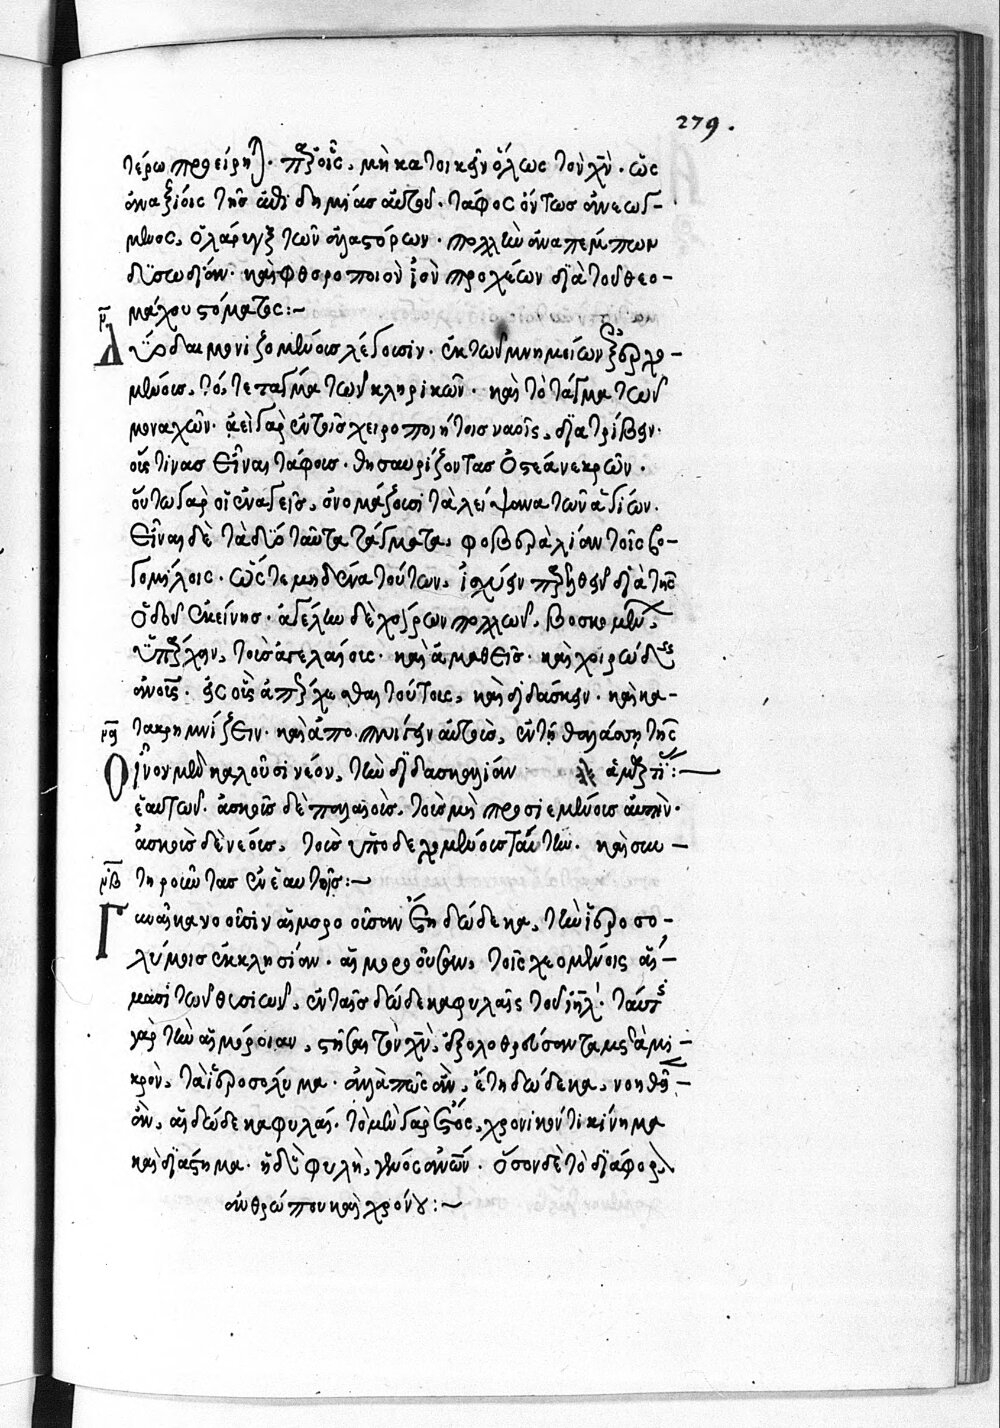 279.
τέρω προείρηται. παρ' οἷς, μὴ κατοικεῖν ὅλως τὸν χν. ὡς
ἀναξίοις τῆς ἐπιδημίας αὐτοῦ. τάφος ὄντως ἀνεωγ-
μένος, ὁ λάρυγξ τῶν ἀλαστόρων. πολλὴν ἀναπέμπων
δυσωδίαν. καὶ φθοροποιὸν ἰὸν προχέων διὰ τοῦ θεο-
μάχου στόματος:~
Δύο δαιμονιζομένους λέγουσιν. ἐκ τῶν μνημείων ἐξερχο-
μένους, τό, τε τάγμα τῶν κληρικῶν. καὶ τὸ τάγμα τῶν
μοναχῶν. ἀεὶ γὰρ ἐν τοῖς χειροποιήτοις ναοῖς, διατρίβειν.
οὕς τινας εἶναι τάφους. θησαυρίζοντας ὀστέα νεκρῶν.
οὕτω γὰρ οἱ ἐναγεῖς, ὀνομάζουσι τὰ λείψανα τῶν ἁγίων.
εἶναι δὲ τὰ δύο ταῦτα τάγματα, φοβερὰ λίαν τοῖς βο-
γομίλοις. ὥστε μηδένα τούτων, ἰσχύειν παρελθεῖν διὰ τῆς
ὁδοῦ ἐκείνης. ἀγέλην δὲ χοίρων πολλῶν, βοσκομένην,
ὑπάρχειν, τοὺς ἀγελαίους. καὶ ἀμαθεῖς. καὶ χοιρώδεις
τακρημνίζειν. καὶ ἀποπνίγειν αὐτοὺς, ἐν τῇ θαλάσσῃ τῆς
ἁμαρτίας:~
Οἶνον μὲν καλοῦσι νέον, τὴν διδασκαλίαν
ἑαυτῶν. ἀσκοὺς δὲ παλαιοὺς, τοὺς μὴ προσιεμένους αὐτήν.
ἀσκοὺς δὲ νέους, τοὺς ὑποδεχομένους ταύτην. καὶ συν-
τηροῦντας ἐν ἑαυτοῖς:~
Γυναῖκα νοοῦσιν αἱμορροοῦσαν ἔτη δώδεκα, τὴν ἱερoσo-
λύμοις ἐκκλησίαν. αἱμορροοῦσαν, τοῖς χεομένοις αἵ-
μασι τῶν θυσιῶν, ἐν ταῖς δώδεκα φυλαῖς τοῦ ιηλ. ταύτης
γὰρ τὴν αἱμόρροιαν, στῆσαι τὸν χν, ἐξολοθρεύσαντα μετὰ μι-
κρὸν, τὰ ἱεροσόλυμα. ἀλλὰ πῶς ἂν, ἔτη δώδεκα, νοηθεῖ-
εν, αἱ δώδεκα φυλαί. τὸ μὲν γὰρ ἔτος, χρονικόν τι κίνημα
καὶ διάστημα. ἡ δὲ φυλὴ, γένος ἀνων. ὅσον δὲ τὸ διάφορον
ἀνθρώπου καὶ χρόνου:~